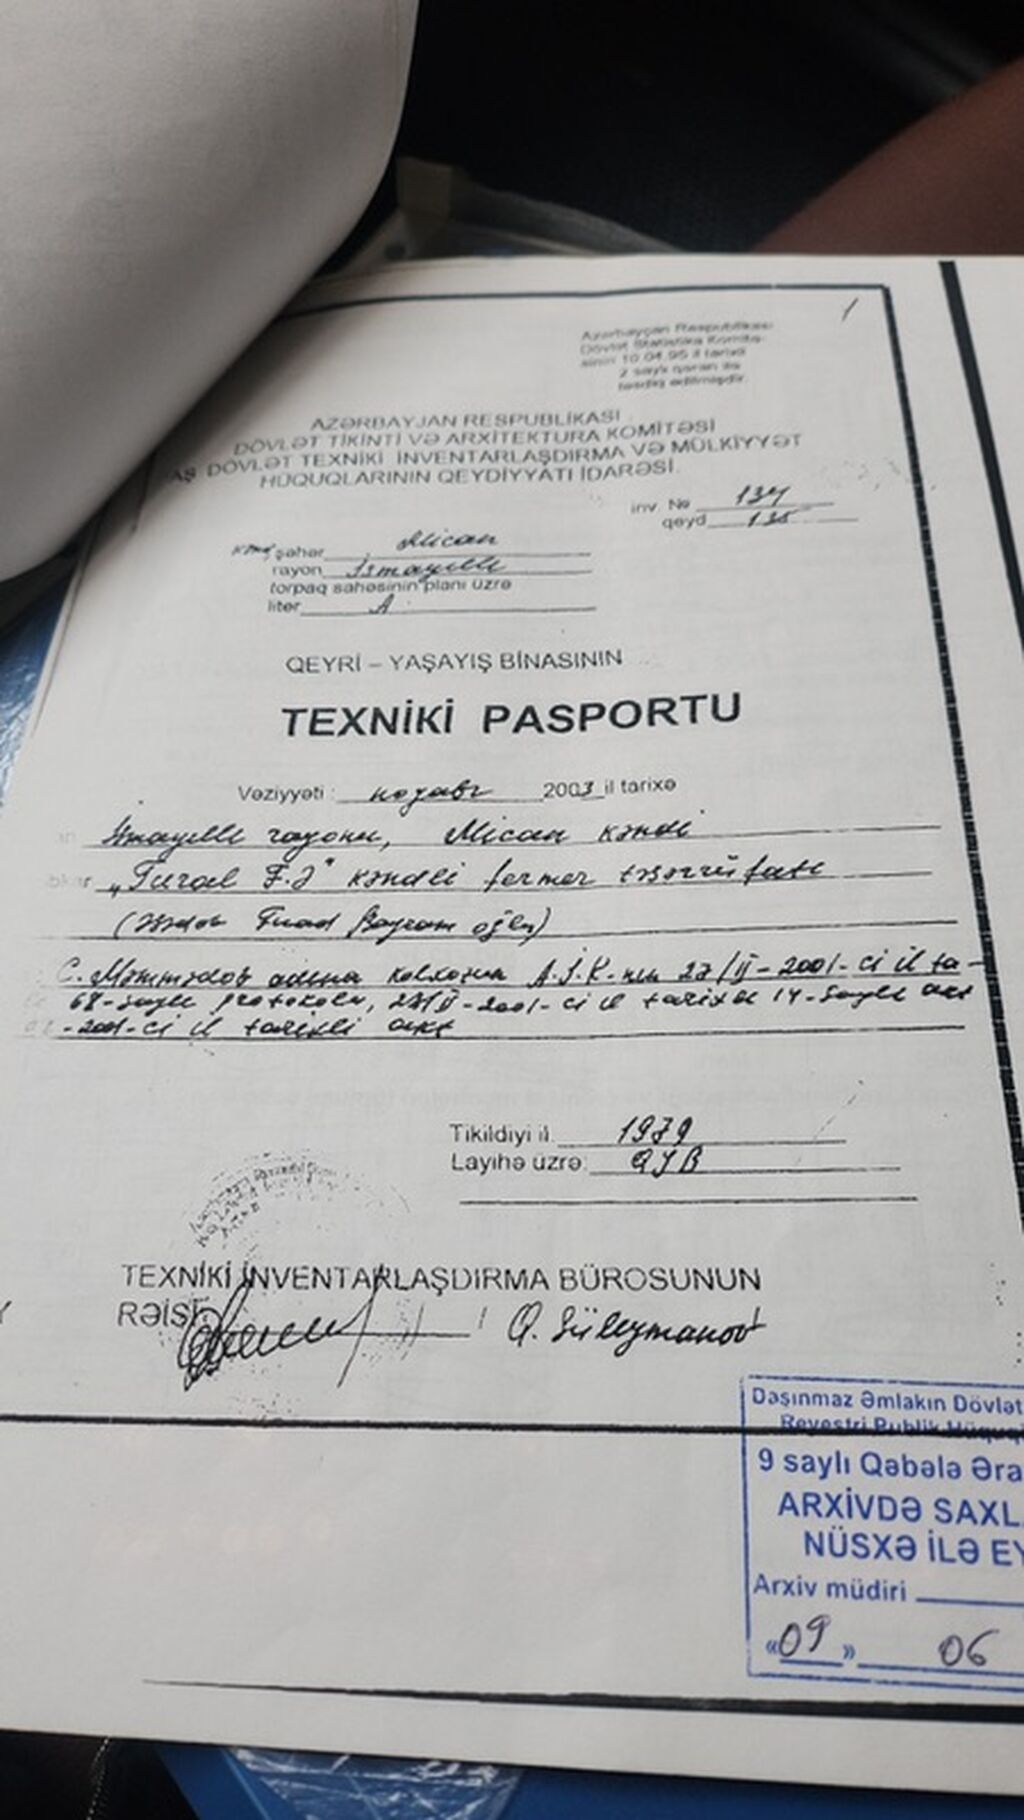 1
Azərbayçan Respublikası
Dövlət Statistika Komitə-
sinin 10.04.95 il tarixə
2 saylı qərarı ilə
təsdiq edilmişdir.
AZƏRBAYJAN RESPUBLİKASI
DÖVLƏT TİKİNTİ VƏ ARXİTEKTURA KOMİTƏSİ
AŞ DÖVLƏT TEXNİKİ İNVENTARLAŞDIRMA VƏ MÜLKİYYƏT
HÜQUQLARININ QEYDİYYATI İDARƏSİ
inv. № 134
qeyd 135
kənd, şəhər Mican
rayon İsmayıllı
torpaq sahəsinin planı üzrə
liter A
QEYRİ – YAŞAYIŞ BİNASININ
TEXNİKİ PASPORTU
Vəziyyəti: noyabr 2003 il tarixə
İsmayıllı rayonu, Mican kəndi
„Tural F.Ə" kəndli fermer təsərrüfatı
Fuad Bayram oğlu)
C. Məmmədov adına kolxozun A.İ.K.-nın 27/II-2001-ci il ta-
68-saylı protokolu, 27/II-2001-ci il tarixli 14-saylı akt
-2001-ci il tarixli akt
Tikildiyi il 1979
Layihə üzrə:
TEXNİKİ İNVENTARLAŞDIRMA BÜROSUNUN
RƏİSİ: Q. Süleymanov
Daşınmaz Əmlakın Dövlət
Reyestri Publik Hüquqi
9 saylı Qəbələ Əra
ARXİVDƏ SAXL
NÜSXƏ İLƏ EY
Arxiv müdiri
«09» 06